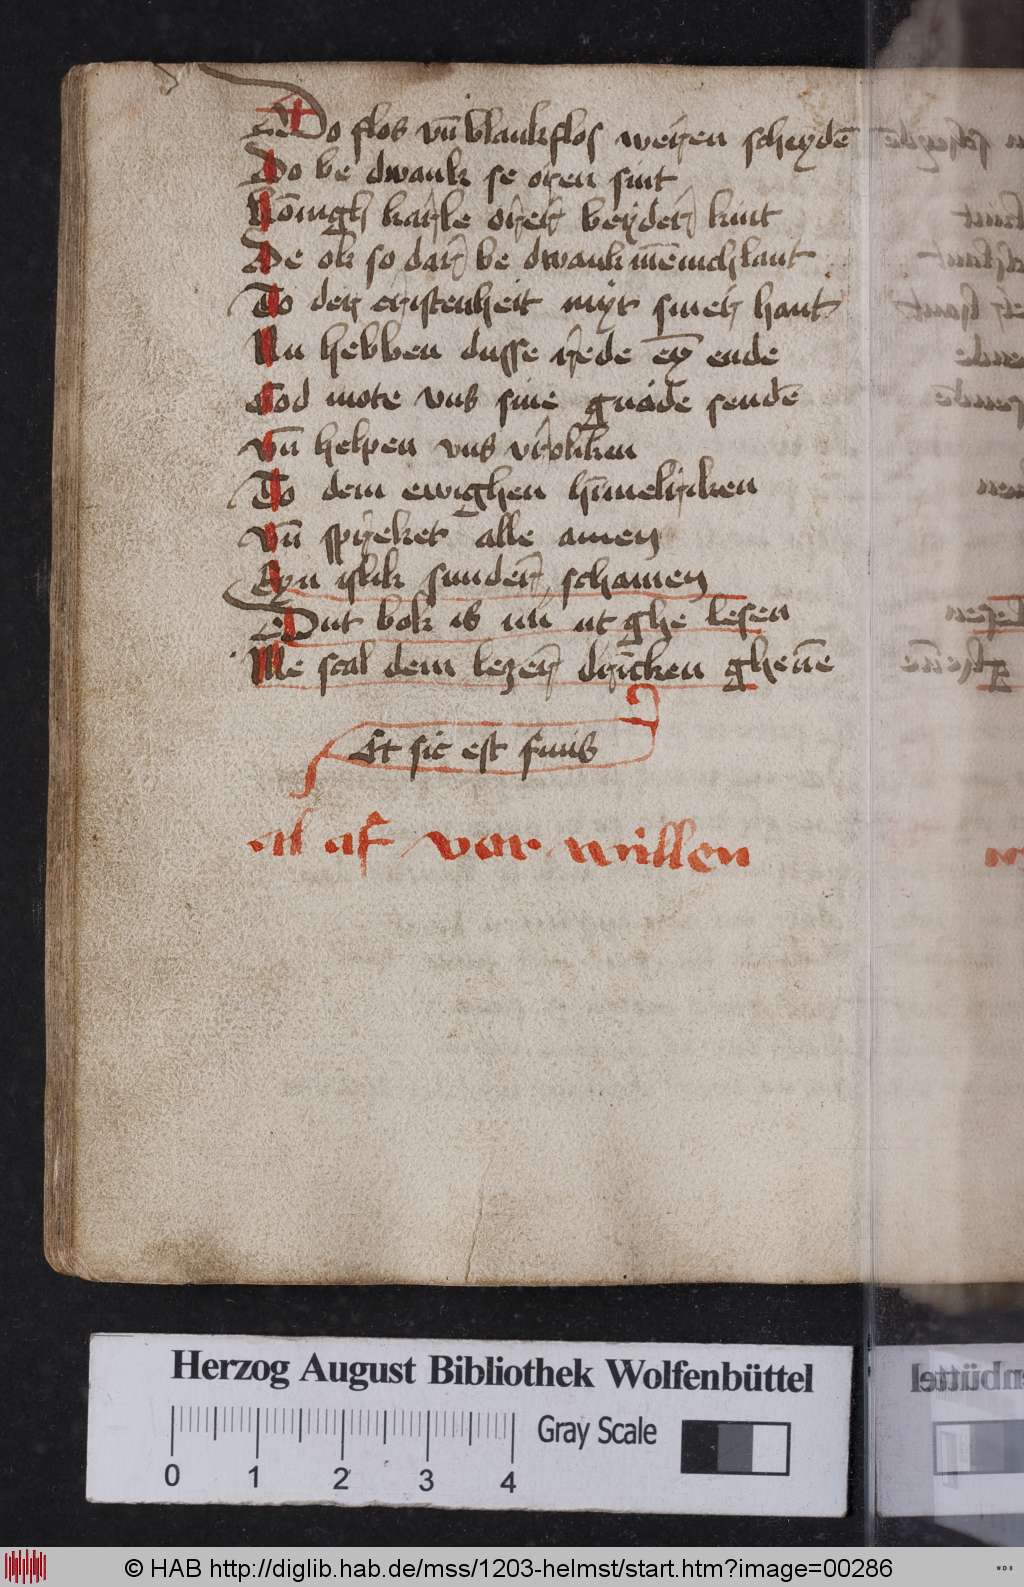 Do flos vn̄ blankflos weren scheydē
Do be dwank se oren sint
Kōnigh karle orer beyder kint
De ok so dar be dwank mēnich lant
To der cristenheit myt siner hant
Nu hebben dusse rede eyn ende
God mote vns sine gnade sendē
vn̄ helpen vns vroliken
To dem ewighen hīmelriken
vn̄ spreket alle amen
Eyn islik sunder schamen
Dut bok is nu ut ghe lesen
Me scal dem lezer drīcken gheuē
Et sic est finis
al af vor willen
Herzog August Bibliothek Wolfenbüttel
Gray Scale
0 1 2 3 4
© HAB http://diglib.hab.de/mss/1203-helmst/start.htm?image=00286